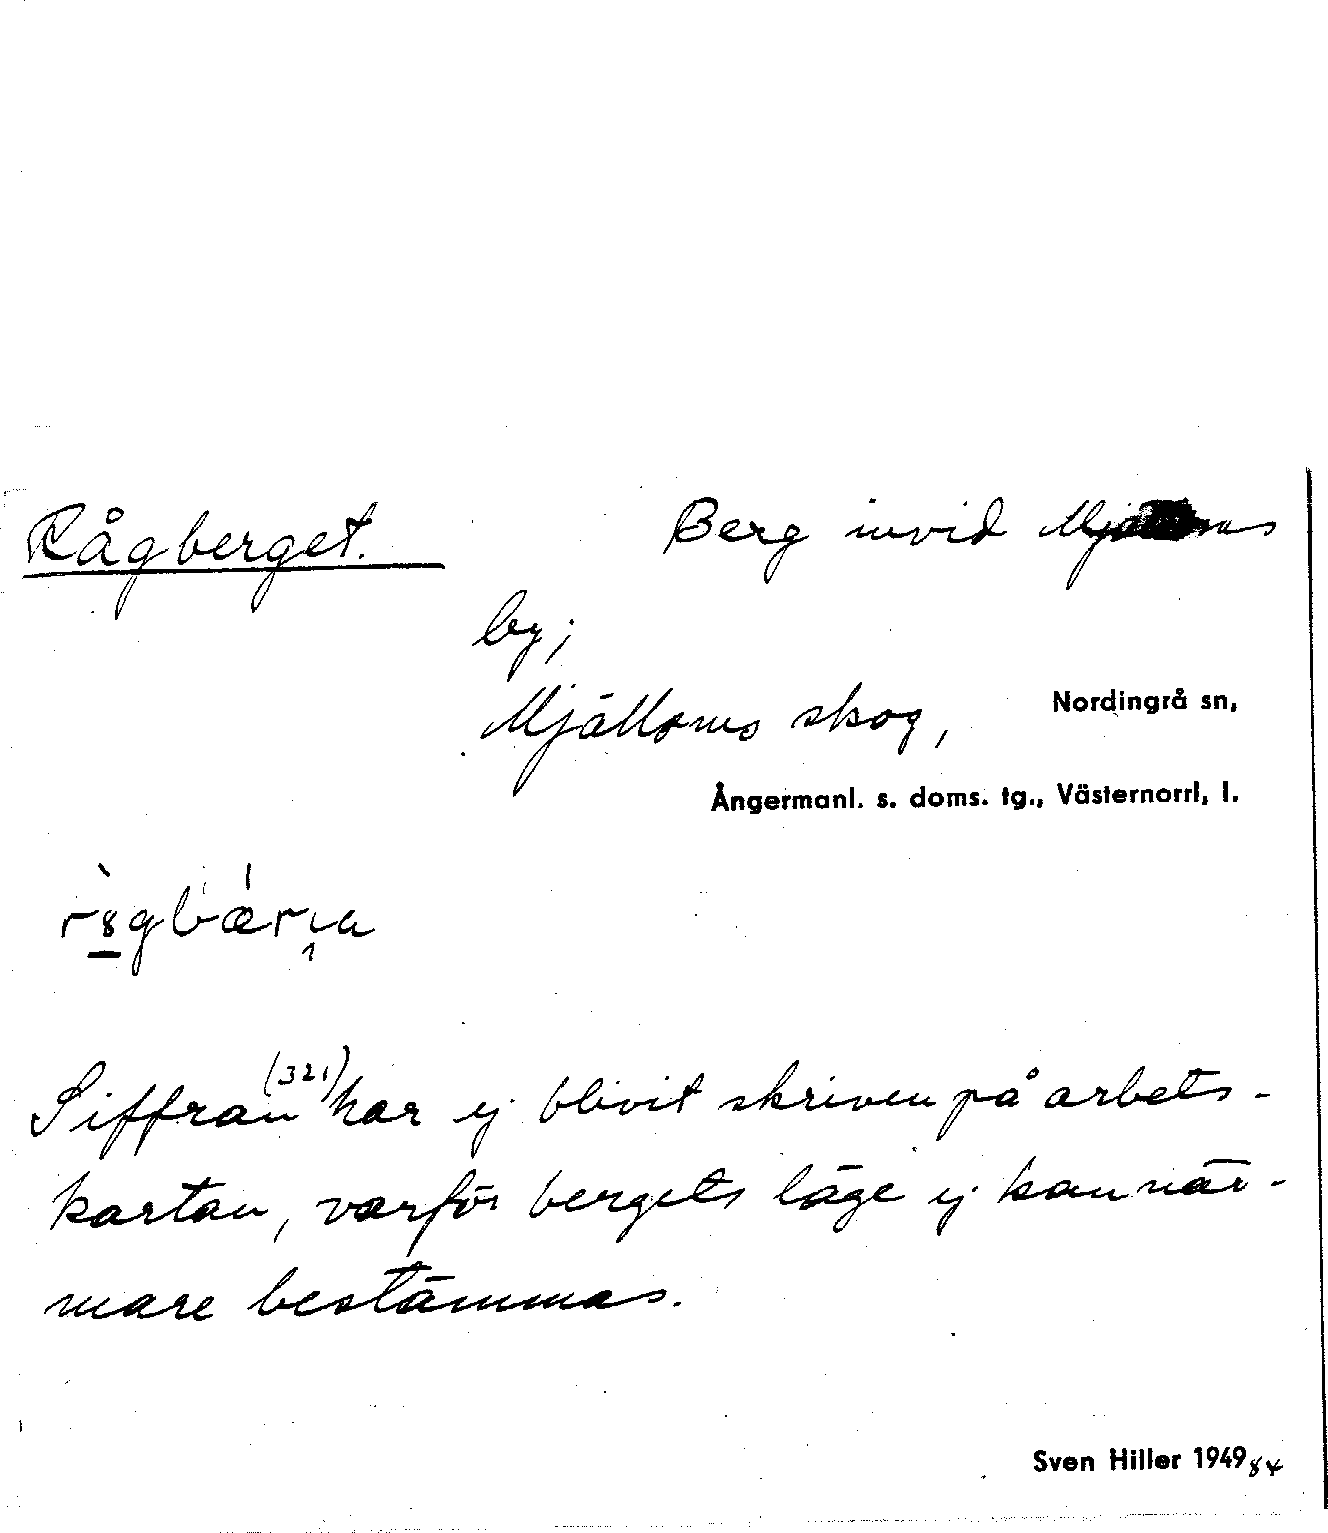 Rågberget. Berg invid Mjälloms
by;
Mjälloms skog, Nordingrå sn,
Ångermanl. s. doms. tg., Västernorrl, l.
Siffran (321) har ej blivit skriven på arbets-
kartan, varför bergets läge ej kan när-
mare bestämmas.
Sven Hiller 1949 84